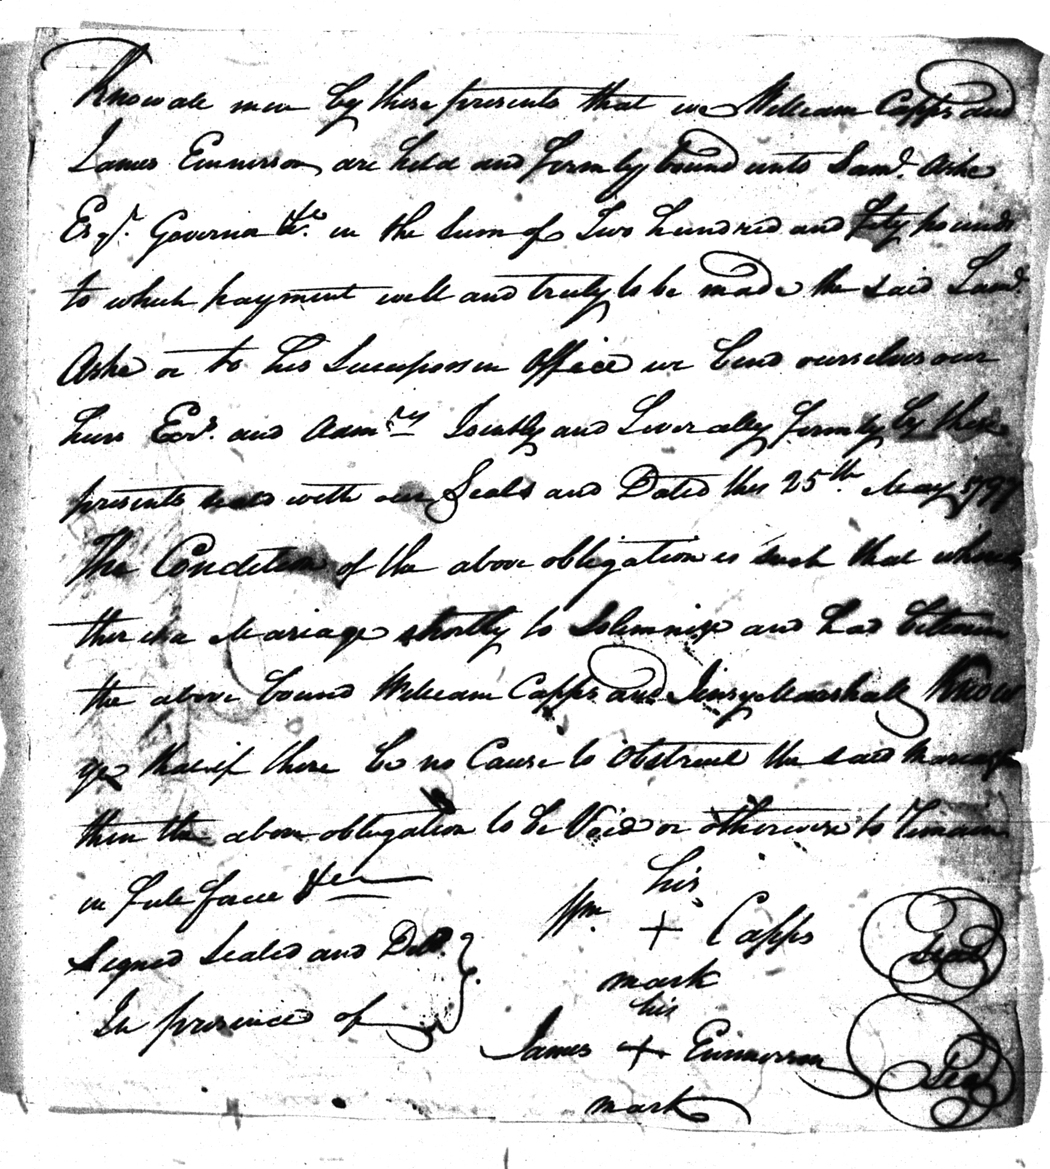 Know all men by these presents that we William Capps and
James Emmerson are held and firmly bound unto Saml. Ashe
Esqr. Governor &c. in the Sum of Two hundred and fifty pounds
to which payment well and truly to be made the said Saml.
Ashe or to his Successors in Office we bind ourselves our
heirs Exrs. and Admrs Jointly and Severally firmly by these
presents with our Seals and Dated this 25th. May 1797
The Condition of the above obligation is such that whereas
ther is a Mariage shortly to Solemnise and had between
the above bound William Capps and Marshall Know
ye that if there be no Cause to obstruct the said Mariage
then the above obligation to be Void or otherwise to Remain
in full force &c
Signed Sealed and Deld.
In presence of
his
Wm. + Capps Seal
mark
his
James + Emmerson Seal
mark